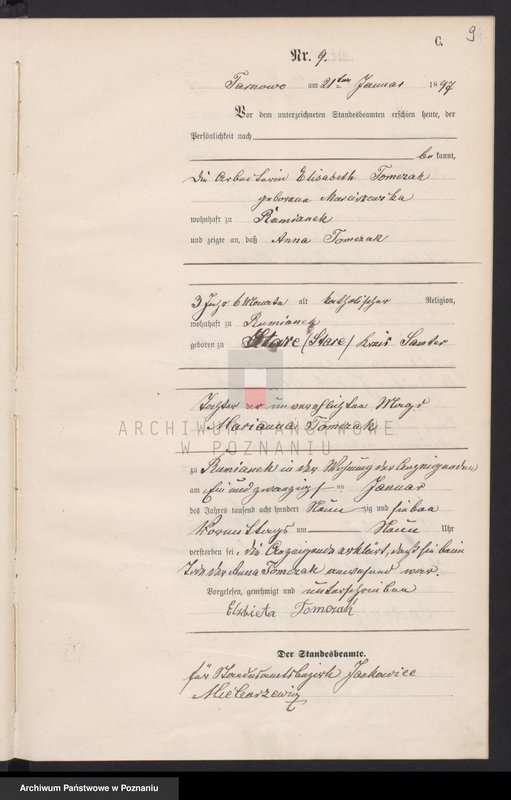 9
C.
Nr. 9.
Tarnowo am 21ten Januar 1897
Vor dem unterzeichneten Standesbeamten erschien heute, der
Persönlichkeit nach
bekannt,
die Arbeiterin Elisabeth Tomczak
geborene Marciszewska
wohnhaft zu Rumianek
und zeigte an, daß Anna Tomczak
3 Jahr 6 Monate alt katholischer Religion,
wohnhaft zu Rumianek
geboren zu (Stare) Kreis Samter
Tochter der unverehlichten Magd
Marianna Tomczak
ARCHIWUM PAŃSTWOWE
W POZNANIU
zu Rumianek in der Wohnung der Anzeigenden
am Ein und zwanzigsten Januar
des Jahres tausend acht hundert Neunzig und sieben
Vormittags um Neun Uhr
verstorben sei, die Anzeigende erklärt, daß sie beim
Tode der Anna Tomczak anwesend war.
Vorgelesen, genehmigt und unterschrieben
Elzbieta Tomczak
Der Standesbeamte.
für Standesamtsbezirk Jankowice
Archiwum Państwowe w Poznaniu